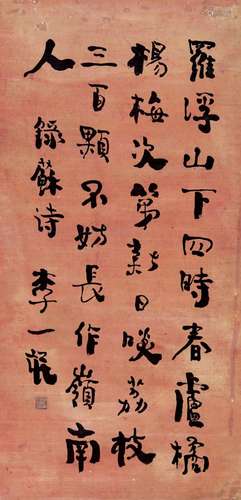 羅浮山下四時春盧橘
楊梅次第新日啖荔枝
三百顆不妨長作嶺南
人 錄蘇诗 李一氓